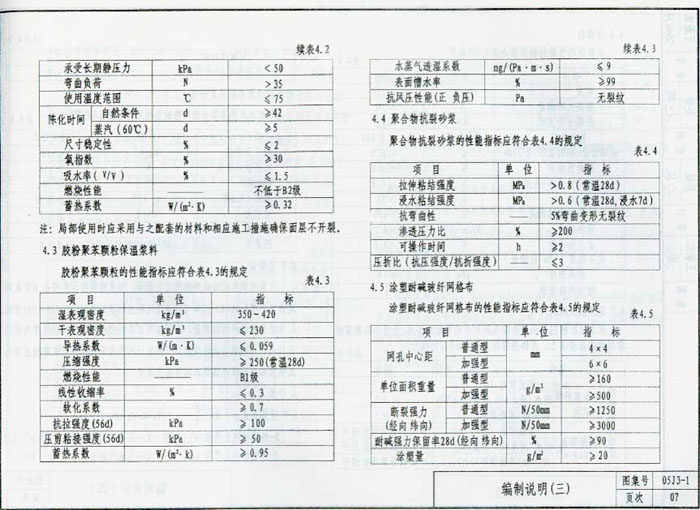 续表4.2
承受长期静压力 kPa <50
弯曲负荷 N >35
使用温度范围 ℃ ≤75
陈化时间 自然条件 d ≥42
蒸汽(60℃) d ≥5
尺寸稳定性 % ≤2
氧指数 % ≥30
吸水率(V/v) % ≤1.5
燃烧性能 —— 不低于B2级
蓄热系数 W/(m²·K) ≥0.32
注: 局部使用时应采用与之配套的材料和相应施工措施确保面层不开裂。
4.3 胶粉聚苯颗粒保温浆料
胶粉聚苯颗粒的性能指标应符合表4.3的规定
表4.3
项 目 单 位 指 标
湿表观密度 kg/m³ 350~420
干表观密度 kg/m³ ≤230
导热系数 W/(m·K) ≤0.059
压缩强度 kPa ≥250(常温28d)
燃烧性能 —— B1级
线性收缩率 % ≤0.3
软化系数 ≥0.7
抗拉强度(56d) kPa ≥100
压剪粘接强度(56d) kPa ≥50
蓄热系数 W/(m²·k) ≥0.95
续表4.3
水蒸气透湿系数 ng/(Pa·m·s) ≤9
表面憎水率 % ≥99
抗风压性能(正 负压) Pa 无裂纹
4.4 聚合物抗裂砂浆
聚合物抗裂砂浆的性能指标应符合表4.4的规定
表4.4
项 目 单 位 指 标
拉伸粘结强度 MPa >0.8(常温28d)
浸水粘结强度 MPa >0.6(常温28d,浸水7d)
抗弯曲性 —— 5%弯曲变形无裂纹
渗透压力比 % ≥200
可操作时间 h ≥2
压折比(抗压强度/抗折强度) —— ≤3
4.5 涂塑耐碱玻纤网格布
涂塑耐碱玻纤网格布的性能指标应符合表4.5的规定
表4.5
项 目 单 位 指 标
网孔中心距 普通型 mm 4×4
加强型 6×6
单位面积重量 普通型 g/m² ≥160
加强型 ≥500
断裂强力 普通型 N/50mm ≥1250
(经向 纬向) 加强型 N/50mm ≥3000
耐碱强力保留率28d(经向 纬向) % ≥90
涂塑量 g/m² ≥20
编制说明(三)
图集号 05J3-1
页次 07